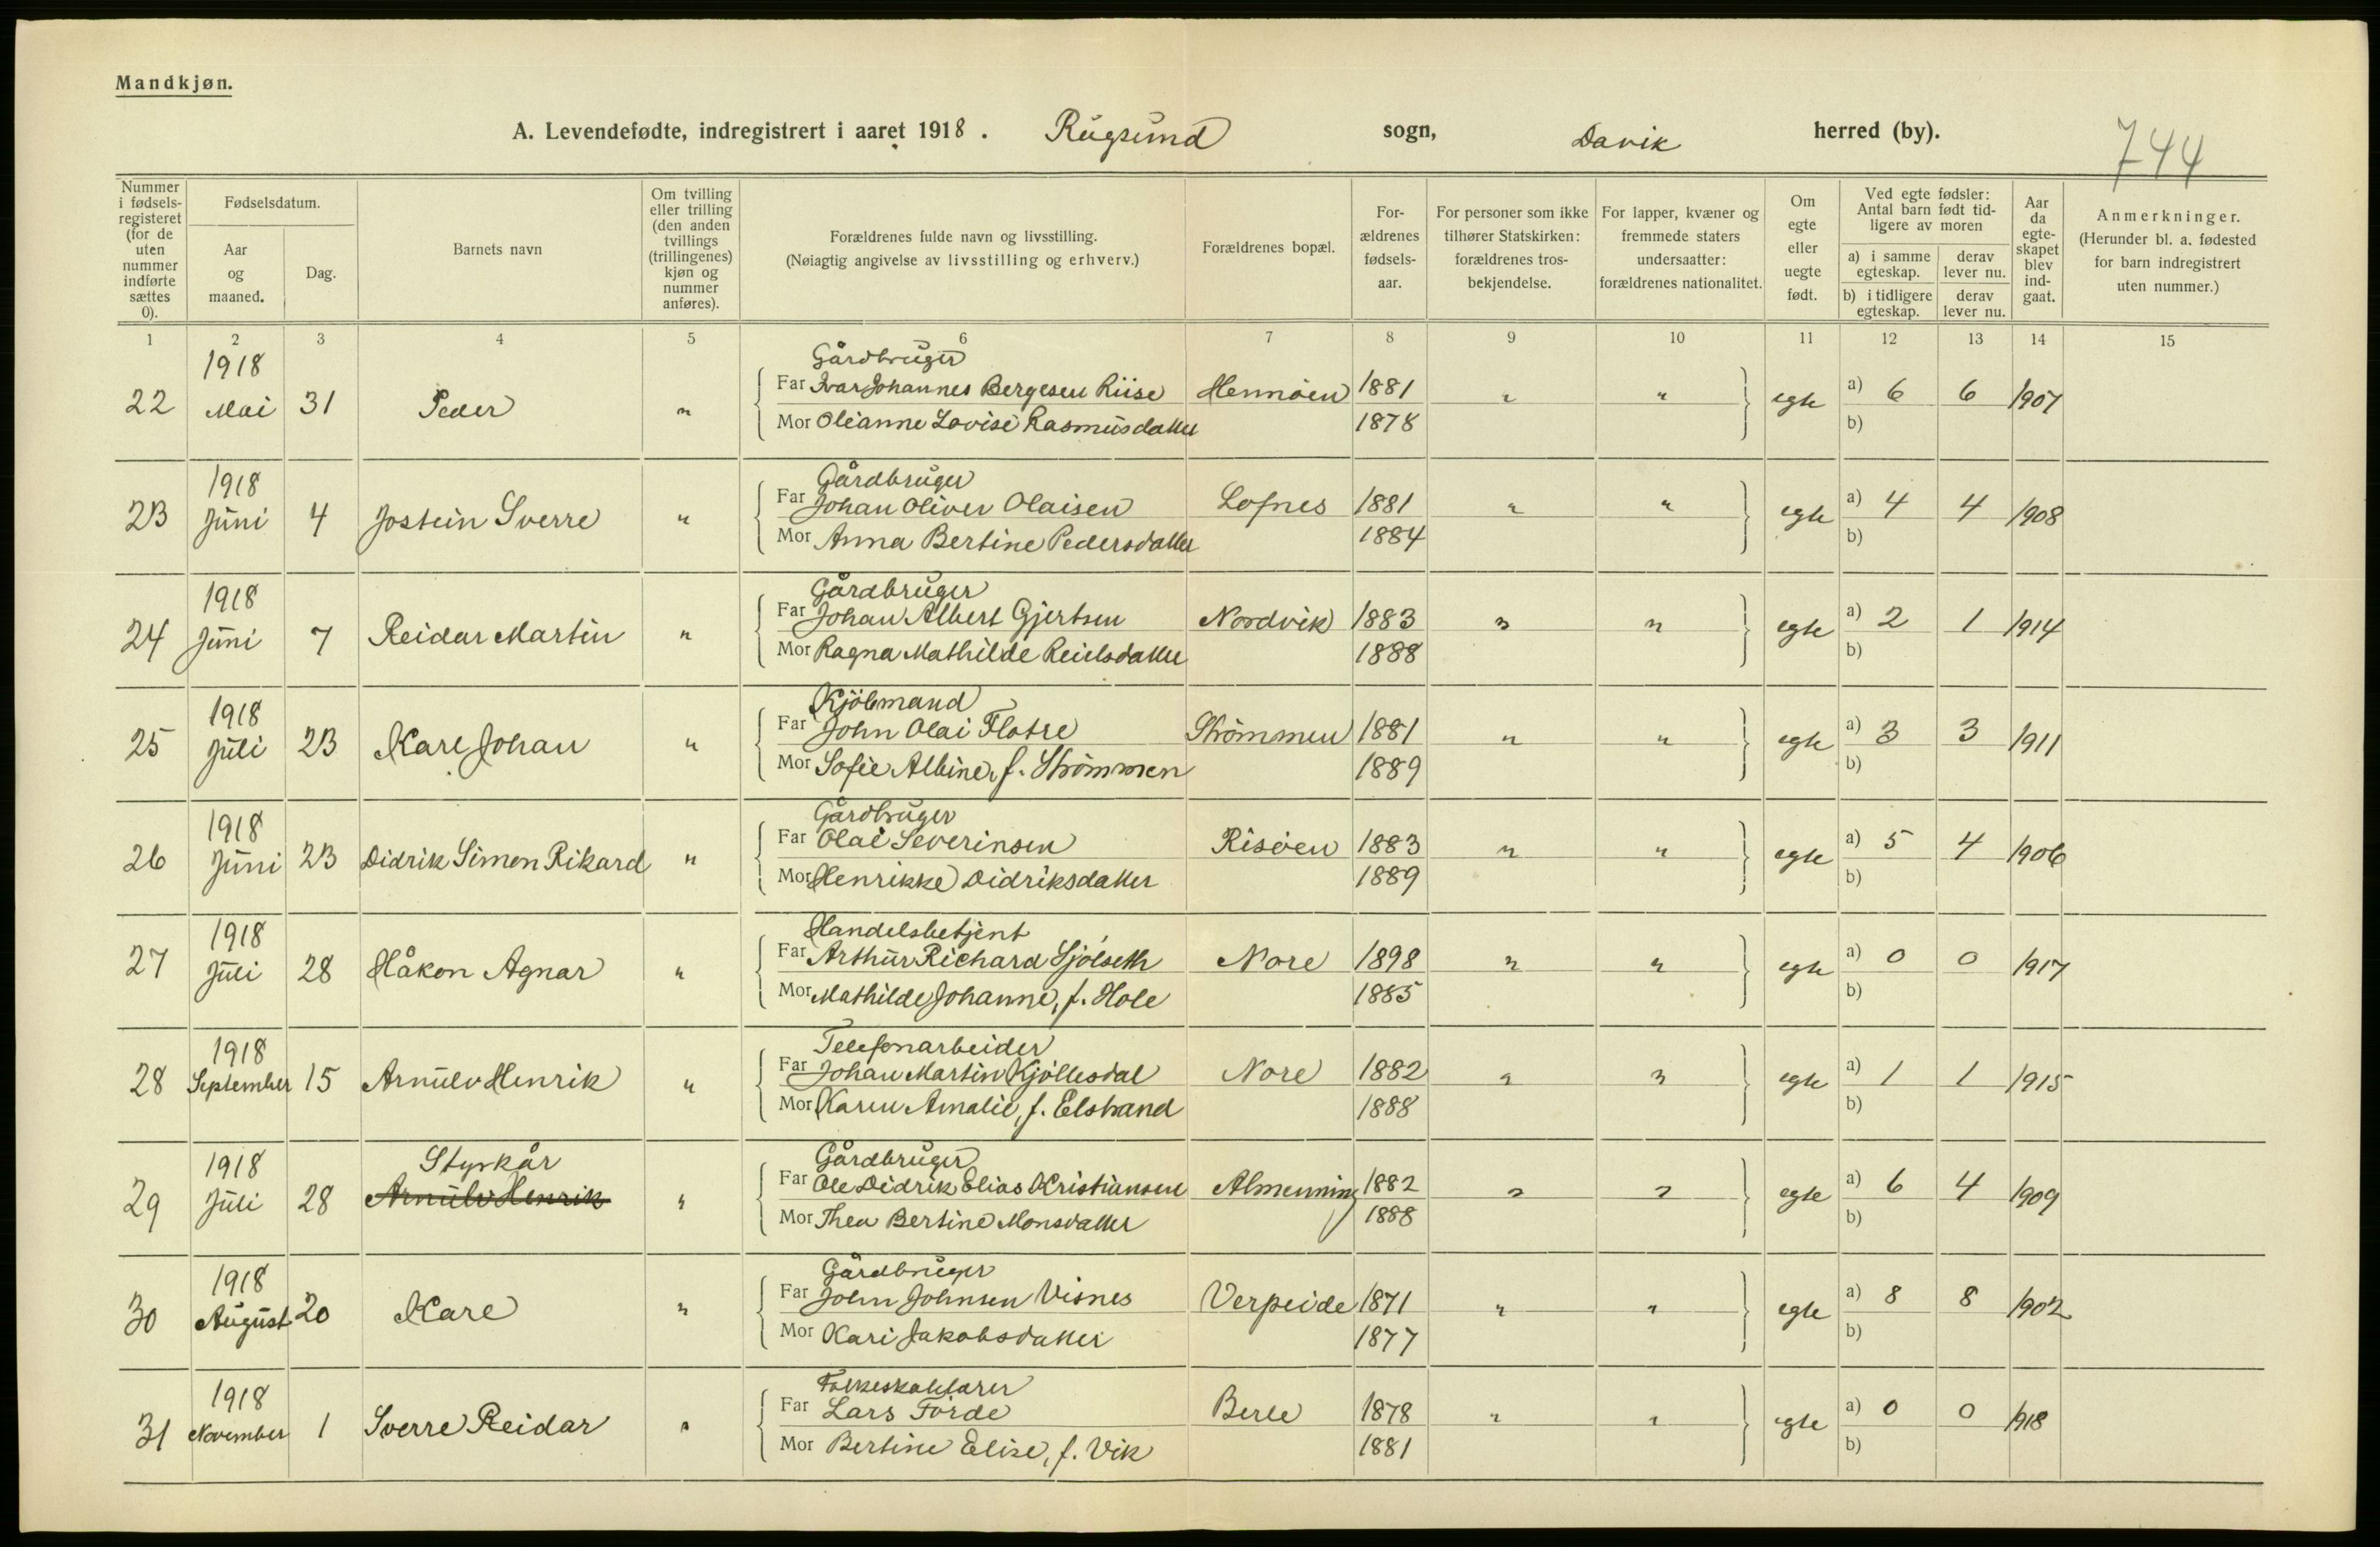 Mandkjøn.
A. Levendefødte, indregistrert i aaret 1918. Rugsund sogn, Davik herred (by).
744
Nummer i fødselsregisteret (for de uten nummer indførte sættes 0).
Fødselsdatum.
Aar og maaned.
Dag.
Barnets navn
Om tvilling eller trilling (den anden tvillings (trillingenes) kjøn og nummer anføres).
Forældrenes fulde navn og livsstilling.
(Nøiagtig angivelse av livsstilling og erhverv.)
Forældrenes bopæl.
Forældrenes fødselsaar.
For personer som ikke tilhører Statskirken: forældrenes trosbekjendelse.
For lapper, kvæner og fremmede staters undersaatter: forældrenes nationalitet.
Om egte eller uegte født.
Ved egte fødsler: Antal barn født tidligere av moren
a) i samme egteskap.
derav lever nu.
b) i tidligere egteskap.
derav lever nu.
Aar da egteskapet blev indgaat.
Anmerkninger.
(Herunder bl. a. fødested for barn indregistrert uten nummer.)
1 2 3 4 5 6 7 8 9 10 11 12 13 14 15
1918 Gårdbruger
22 Mai 31 Peder " Far Ivar Johannes Bergesen Riise Hennöen 1881 " " egte a) 6 6 1907
Mor Oleanne Lovise Rasmusdatter 1878 b)
1918 Gårdbruger
23 Juni 4 Jostein Sverre " Far Johan Oliver Olaisen Lofnes 1881 " " egte a) 4 4 1908
Mor Anna Bertine Pedersdatter 1884 b)
1918 Gårdbruger
24 Juni 7 Reidar Martin " Far Johan Albert Gjertsen Nordvik 1883 " " egte a) 2 1 1914
Mor Ragna Mathilde Reielsdatter 1888 b)
1918 Kjöbmand
25 Juli 23 Kare Johan " Far John Olai Flatre Strömmen 1881 " " egte a) 3 3 1911
Mor Sofie Albine, f. Strömmen 1889 b)
1918 Gårdbruger
26 Juni 23 Didrik Simon Rikard " Far Olai Severinsen Risöen 1883 " " egte a) 5 4 1906
Mor Henrikke Didriksdatter 1889 b)
1918 Handelsbetjent
27 Juli 28 Håkon Agnar " Far Arthur Richard Sjölseth Nore 1898 " " egte a) 0 0 1917
Mor Mathilde Johanne, f. Hole 1885 b)
1918 Telefonarbeider
28 September 15 Arnulv Henrik " Far Johan Martin Kjöllesdal Nore 1882 " " egte a) 1 1 1915
Mor Karen Amalie, f. Elstrand 1888 b)
1918 Styrkår Gårdbruger
29 Juli 28 Arnulv Henrik " Far Ole Didrik Elias Kristiansen Almenning 1882 " " egte a) 6 4 1909
Mor Thea Bertine Monsdatter 1888 b)
1918 Gårdbruger
30 August 20 Kare " Far John Johnsen Visnes Verpeide 1871 " " egte a) 8 8 1902
Mor Kari Jakobsdatter 1877 b)
1918 Folkeskolelærer
31 November 1 Sverre Reidar " Far Lars Förde Berle 1878 " " egte a) 0 0 1918
Mor Bertine Elise, f. Vik 1881 b)